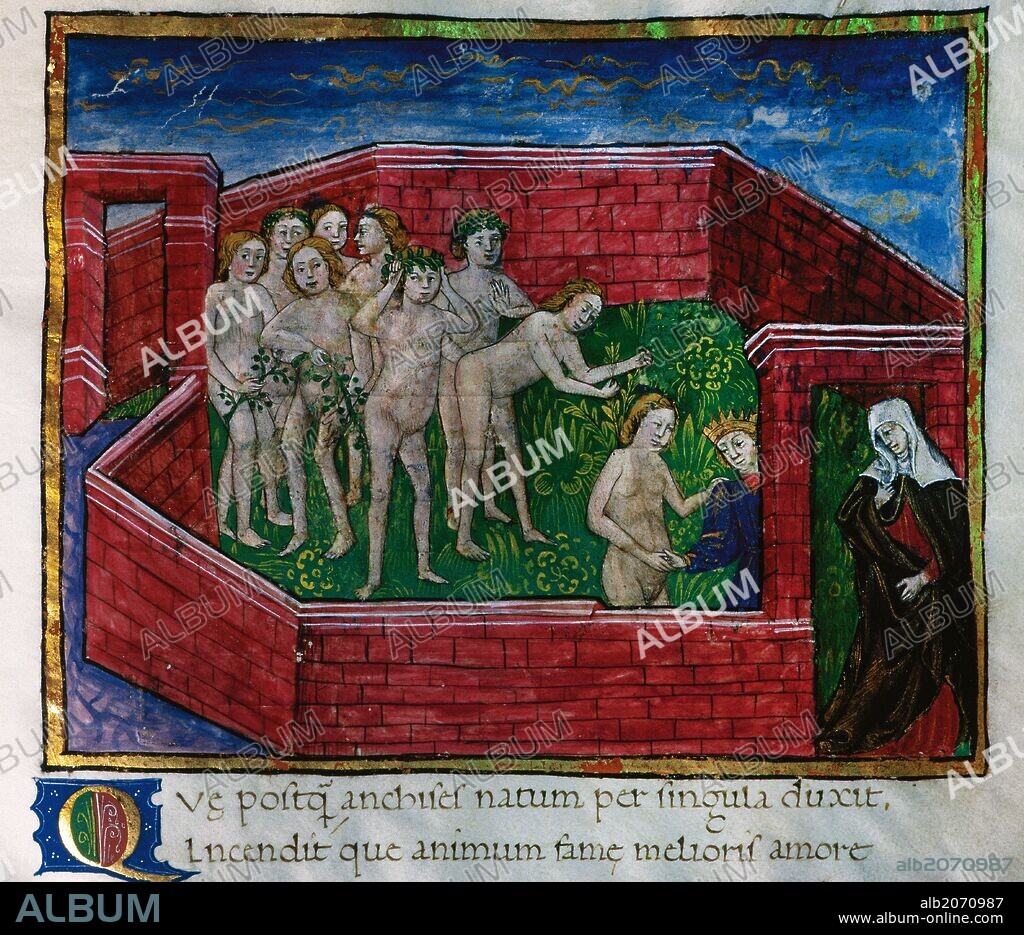 Ve postq̃ anchises natum per singula duxit,
Incendit que animum famę melioris amore
alb2070987
ALBUM
alb2070987
www.album-online.com